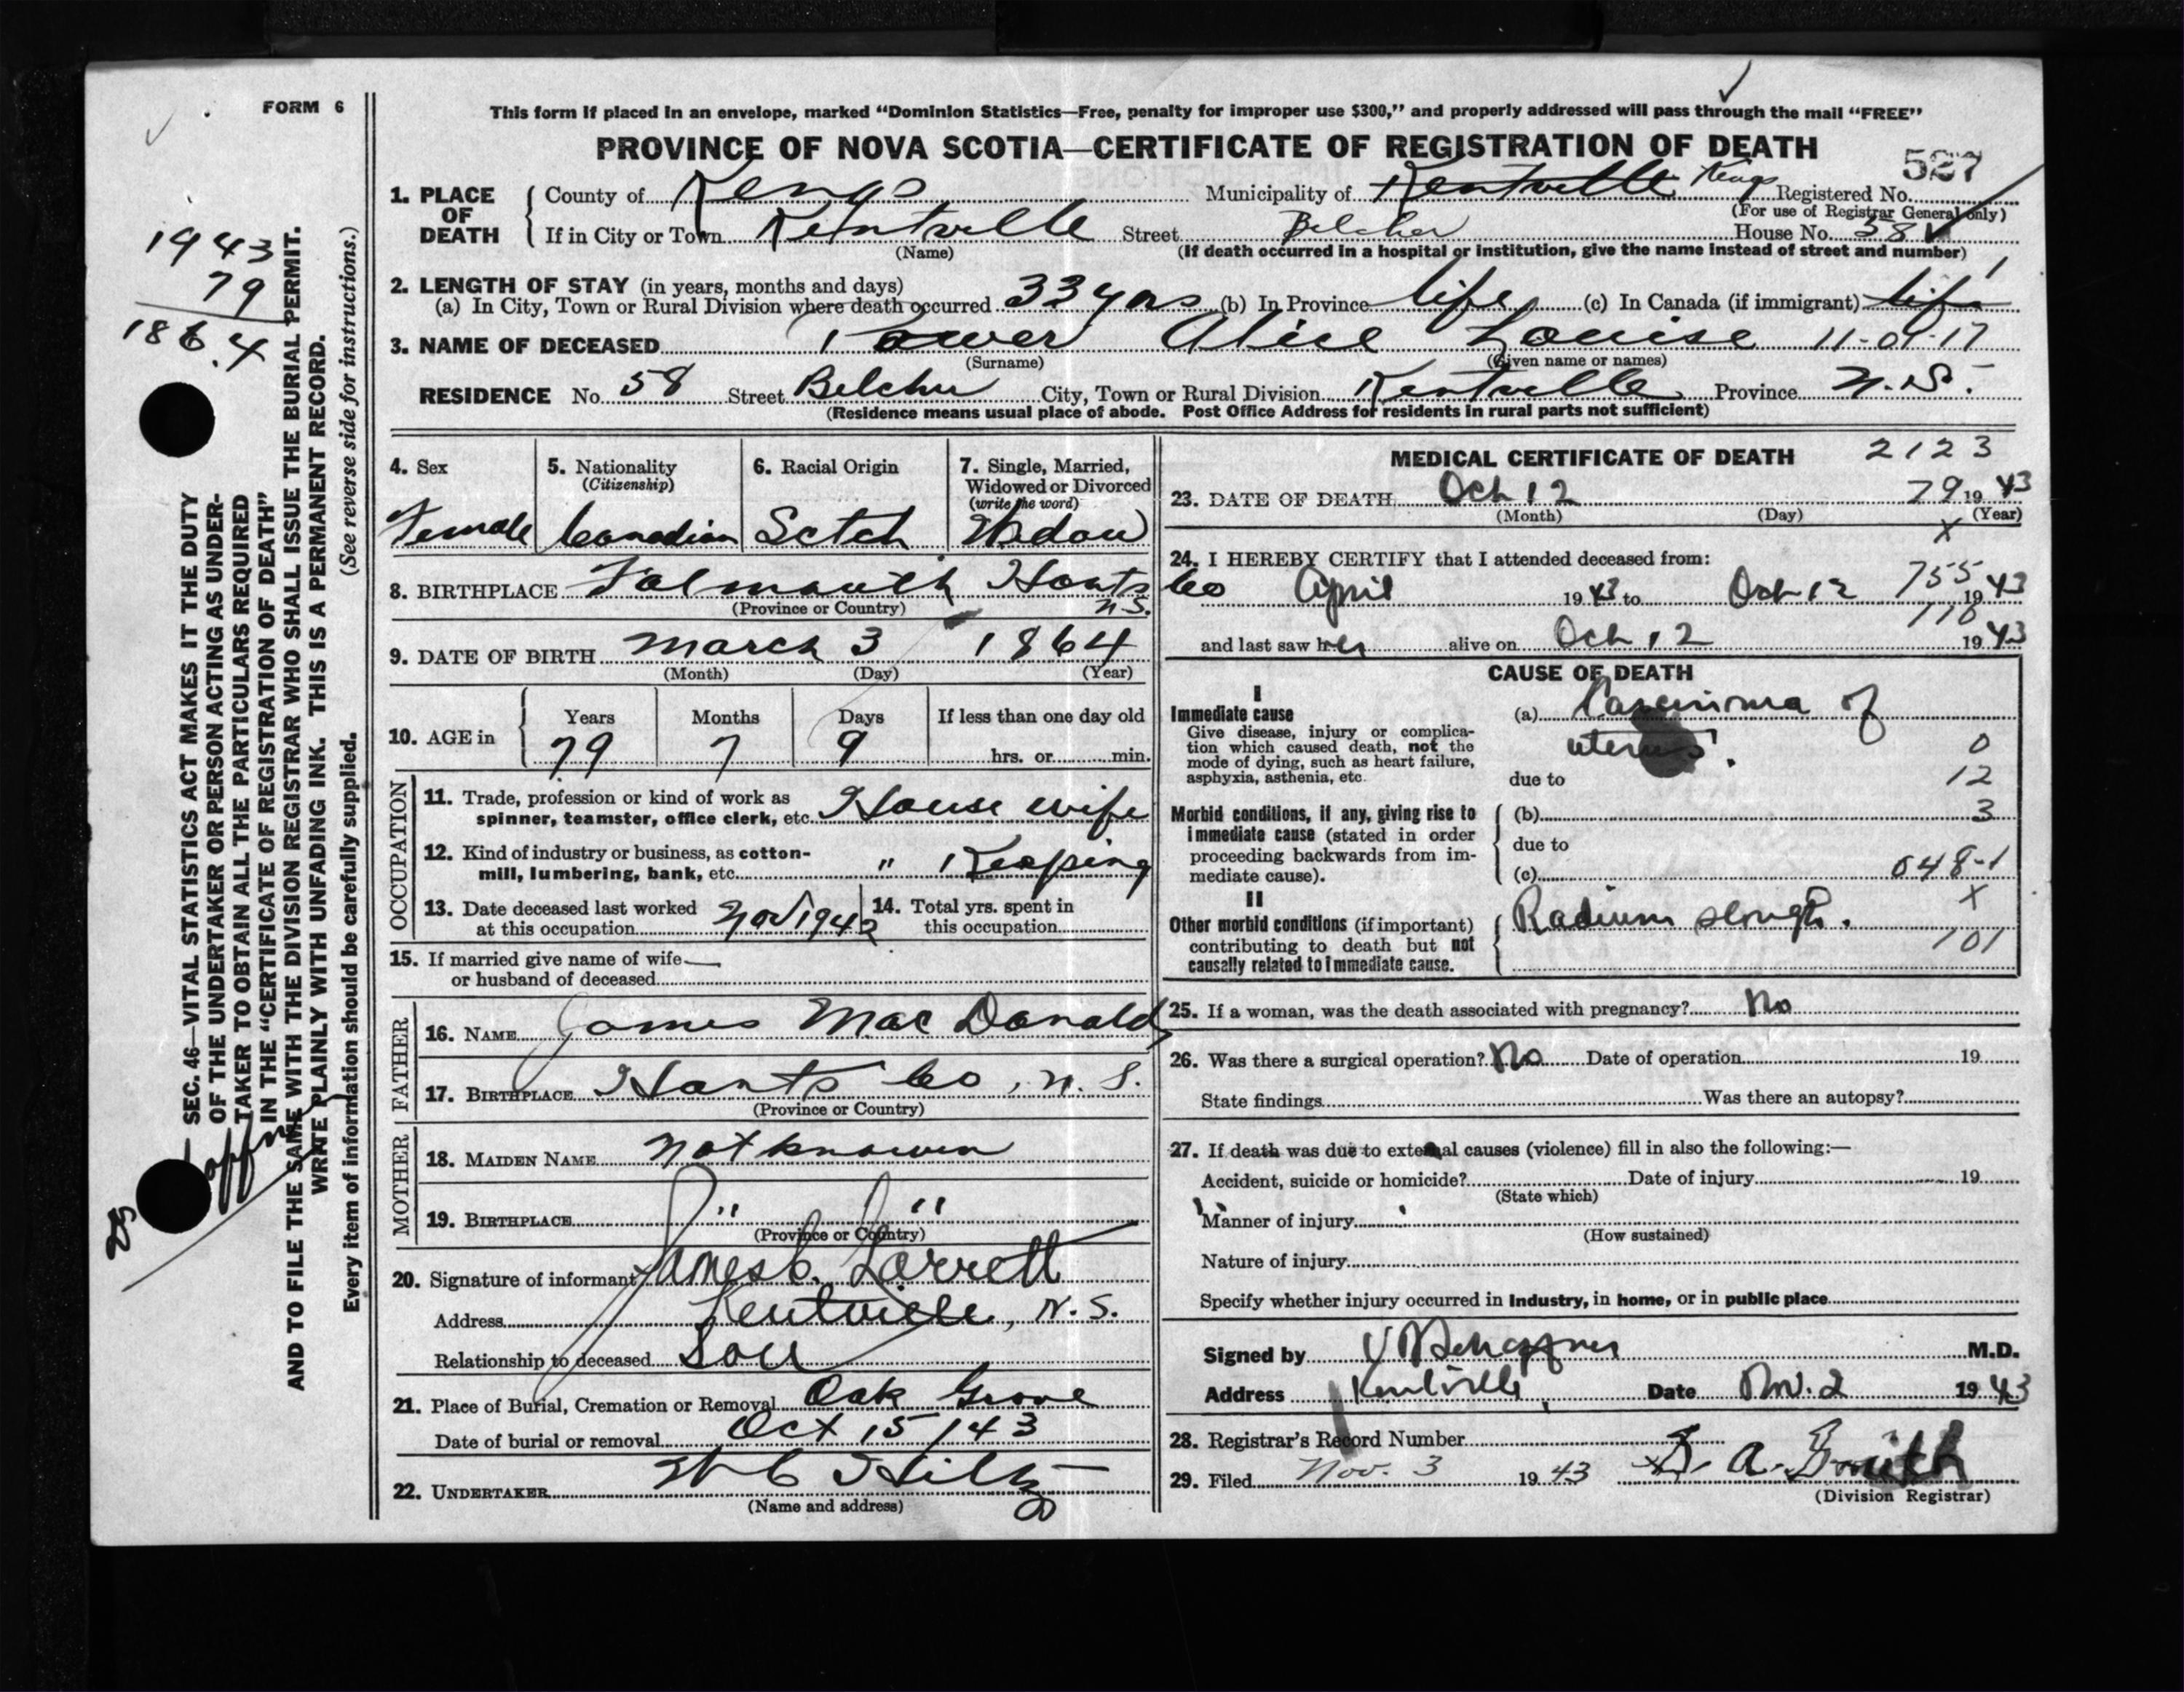 FORM 6
This form if placed in an envelope, marked “Dominion Statistics—Free, penalty for improper use $300,” and properly addressed will pass through the mail “FREE”
PROVINCE OF NOVA SCOTIA—CERTIFICATE OF REGISTRATION OF DEATH
587
1. PLACE OF DEATH
County of Kings Municipality of Kentville Kings Registered No.
(For use of Registrar General only)
If in City or Town Kentville Street Belcher House No. 58
(Name) (If death occurred in a hospital or institution, give the name instead of street and number)
2. LENGTH OF STAY (in years, months and days)
(a) In City, Town or Rural Division where death occurred 33 yrs (b) In Province life (c) In Canada (if immigrant) life
3. NAME OF DECEASED Power Alice Louise 11-09-17
(Surname) (Given name or names)
RESIDENCE No. 58 Street Belcher City, Town or Rural Division Kentville Province N.S.
(Residence means usual place of abode. Post Office Address for residents in rural parts not sufficient)
4. Sex
Female
5. Nationality
(Citizenship)
Canadian
6. Racial Origin
Scotch
7. Single, Married,
Widowed or Divorced
(write the word)
Widow
8. BIRTHPLACE Falmouth Hants Co
N.S.
(Province or Country)
9. DATE OF BIRTH March 3 1864
(Month) (Day) (Year)
10. AGE in
Years Months Days If less than one day old
79 7 9 hrs. or min.
OCCUPATION
11. Trade, profession or kind of work as
spinner, teamster, office clerk, etc. House wife
12. Kind of industry or business, as cotton-
mill, lumbering, bank, etc. " Keeping
13. Date deceased last worked
at this occupation Nov 1942
14. Total yrs. spent in
this occupation
15. If married give name of wife —
or husband of deceased
FATHER
16. NAME James MacDonald
17. BIRTHPLACE Hants Co, N.S.
(Province or Country)
MOTHER
18. MAIDEN NAME Not known
19. BIRTHPLACE " "
(Province or Country)
20. Signature of informant James C. Lorrett
Address Kentville, N.S.
Relationship to deceased Son
21. Place of Burial, Cremation or Removal Oak Grove
Date of burial or removal Oct 15/43
22. UNDERTAKER W C Hiltz
(Name and address)
MEDICAL CERTIFICATE OF DEATH 2123
23. DATE OF DEATH Oct 12 79 1943
(Month) (Day) (Year)
x
24. I HEREBY CERTIFY that I attended deceased from:
April 1943 to Oct 12 755 1943
110
and last saw her alive on Oct 12 1943
CAUSE OF DEATH
I
Immediate cause
Give disease, injury or complica-
tion which caused death, not the
mode of dying, such as heart failure,
asphyxia, asthenia, etc.
(a) Carcinoma of
uterus. 0
due to 12
Morbid conditions, if any, giving rise to
immediate cause (stated in order
proceeding backwards from im-
mediate cause).
(b) 3
due to
(c) 048-1
II
Other morbid conditions (if important)
contributing to death but not
causally related to immediate cause.
x
Radium slough.
101
25. If a woman, was the death associated with pregnancy? No
26. Was there a surgical operation? No Date of operation 19
State findings Was there an autopsy?
27. If death was due to external causes (violence) fill in also the following:—
Accident, suicide or homicide? Date of injury 19
(State which)
Manner of injury
(How sustained)
Nature of injury
Specify whether injury occurred in Industry, in home, or in public place
Signed by M.D.
Address Kentville Date Nov. 2 1943
28. Registrar's Record Number
29. Filed Nov. 3 1943 A. Smith
(Division Registrar)
1943
79
1864
SEC. 46—VITAL STATISTICS ACT MAKES IT THE DUTY
OF THE UNDERTAKER OR PERSON ACTING AS UNDER-
TAKER TO OBTAIN ALL THE PARTICULARS REQUIRED
IN THE “CERTIFICATE OF REGISTRATION OF DEATH”
AND TO FILE THE SAME WITH THE DIVISION REGISTRAR WHO SHALL ISSUE THE BURIAL PERMIT.
WRITE PLAINLY WITH UNFADING INK. THIS IS A PERMANENT RECORD.
Every item of information should be carefully supplied. (See reverse side for instructions.)